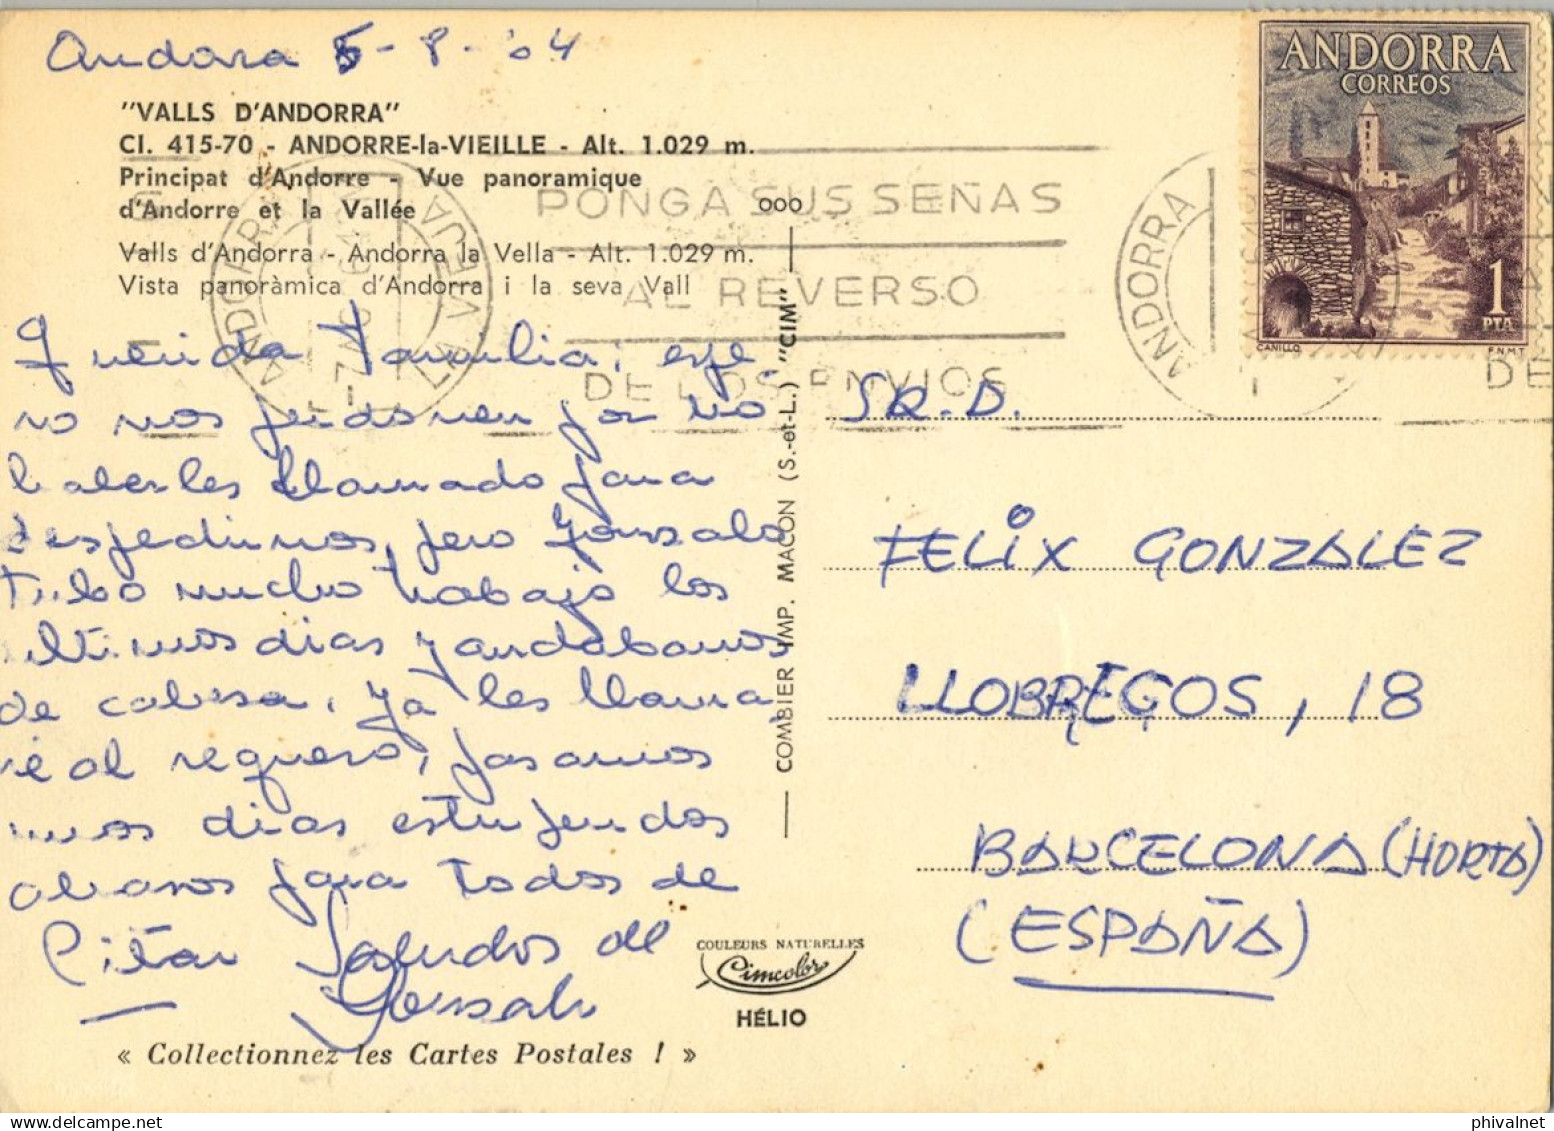 Andorra 5-8-'64
"VALLS D'ANDORRA"
CI. 415-70 - ANDORRE-la-VIEILLE - Alt. 1.029 m.
Principat d'Andorre - Vue panoramique
d'Andorre et la Vallée
Valls d'Andorra - Andorra la Vella - Alt. 1.029 m.
Vista panoràmica d'Andorra i la seva Vall
Querida Familia; espe-
ro nos perdonen por no
haberles llamado para
despedirnos, pero Gonzalo
tubo mucho trabajo los
ultimos dias y andabamos
de cabesa, ya les llama
re al regreso, pasamos
unos dias estupendos
abrasos para todos de
Pitar Saludos de
Gonzalo
« Collectionnez les Cartes Postales ! »
ooo
COMBIER IMP. MACON (S.-et-L.) "CIM"
COULEURS NATURELLES
Cimcolor
HÉLIO
PONGA SUS SEÑAS
AL REVERSO
DE LOS ENVIOS
ANDORRA
LA VIEJA
ANDORRA
DE
ANDORRA
CORREOS
1
PTA
CANILLO
F.N.M.T.
SR. D.
FELIX GONZALEZ
LLOBREGOS, 18
BARCELONA (HORTA)
(ESPAÑA)
phivalnet